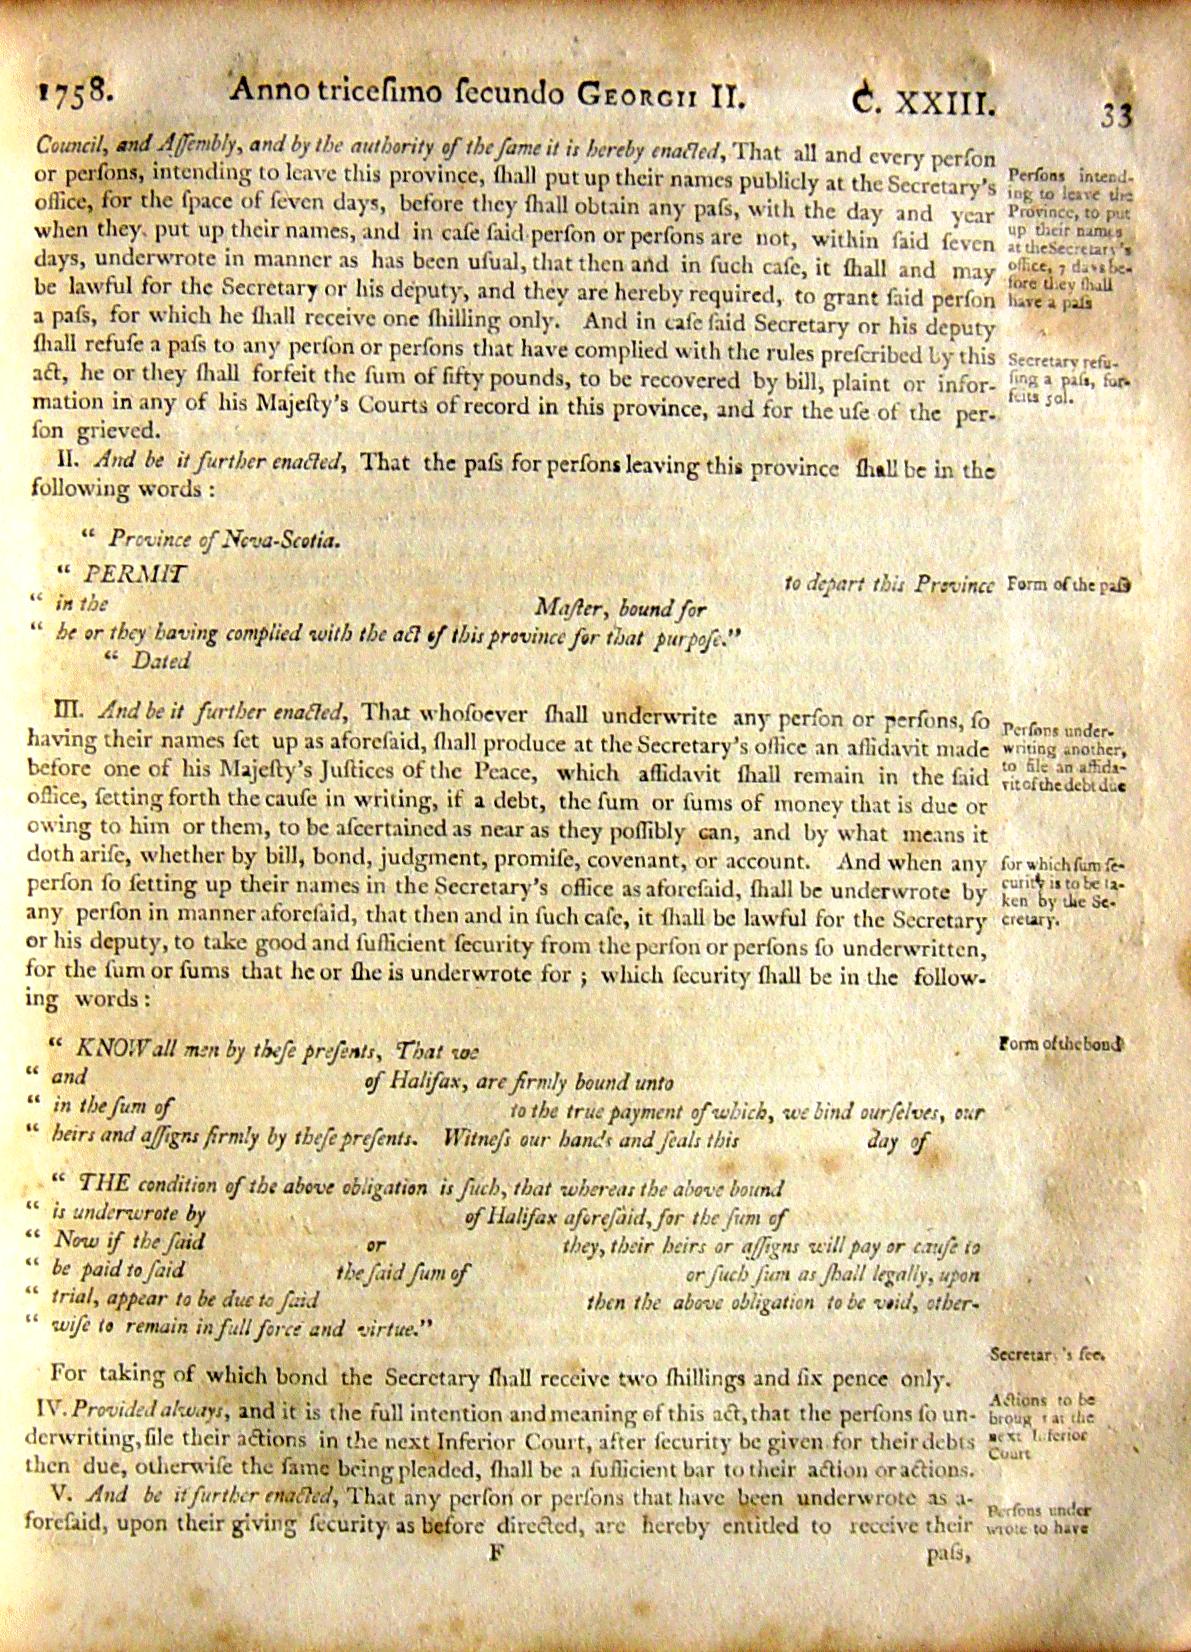 1758. Anno triceſimo ſecundo GEORGII II. C. XXIII. 33
Council, and Aſſembly, and by the authority of the ſame it is hereby enacted, That all and every perſon
or perſons, intending to leave this province, ſhall put up their names publicly at the Secretary's
office, for the ſpace of ſeven days, before they ſhall obtain any paſs, with the day and year
when they put up their names, and in caſe ſaid perſon or perſons are not, within ſaid ſeven
days, underwrote in manner as has been uſual, that then and in ſuch caſe, it ſhall and may
be lawful for the Secretary or his deputy, and they are hereby required, to grant ſaid perſon
a paſs, for which he ſhall receive one ſhilling only. And in caſe ſaid Secretary or his deputy
ſhall refuſe a paſs to any perſon or perſons that have complied with the rules preſcribed by this
act, he or they ſhall forfeit the ſum of fifty pounds, to be recovered by bill, plaint or infor-
mation in any of his Majeſty's Courts of record in this province, and for the uſe of the per-
ſon grieved.
Perſons intend-
ing to leave the
Province, to put
up their names
at the Secretary's
office, 7 days be-
fore they ſhall
have a paſs
Secretary refu-
ſing a paſs, for-
feits 50l.
II. And be it further enacted, That the paſs for perſons leaving this province ſhall be in the
following words :
“ Province of Nova-Scotia.
“ PERMIT to depart this Province
“ in the Maſter, bound for
“ he or they having complied with the act of this province for that purpoſe.”
“ Dated
Form of the paſs
III. And be it further enacted, That whoſoever ſhall underwrite any perſon or perſons, ſo
having their names ſet up as aforeſaid, ſhall produce at the Secretary's office an affidavit made
before one of his Majeſty's Juſtices of the Peace, which affidavit ſhall remain in the ſaid
office, ſetting forth the cauſe in writing, if a debt, the ſum or ſums of money that is due or
owing to him or them, to be aſcertained as near as they poſſibly can, and by what means it
doth ariſe, whether by bill, bond, judgment, promiſe, covenant, or account. And when any
perſon ſo ſetting up their names in the Secretary's office as aforeſaid, ſhall be underwrote by
any perſon in manner aforeſaid, that then and in ſuch caſe, it ſhall be lawful for the Secretary
or his deputy, to take good and ſufficient ſecurity from the perſon or perſons ſo underwritten,
for the ſum or ſums that he or ſhe is underwrote for ; which ſecurity ſhall be in the follow-
ing words :
Perſons under-
writing another,
to file an affida-
vit of the debt due
for which ſum ſe-
curity is to be ta-
ken by the Se-
cretary.
“ KNOW all men by theſe preſents, That we
“ and of Halifax, are firmly bound unto
“ in the ſum of to the true payment of which, we bind ourſelves, our
“ heirs and aſſigns firmly by theſe preſents. Witneſs our hands and ſeals this day of
Form of the bond
“ THE condition of the above obligation is ſuch, that whereas the above bound
“ is underwrote by of Halifax aforeſaid, for the ſum of
“ Now if the ſaid or they, their heirs or aſſigns will pay or cauſe to
“ be paid to ſaid the ſaid ſum of or ſuch ſum as ſhall legally, upon
“ trial, appear to be due to ſaid then the above obligation to be void, other-
“ wiſe to remain in full force and virtue.”
For taking of which bond the Secretary ſhall receive two ſhillings and ſix pence only.
Secretary's fee.
IV. Provided always, and it is the full intention and meaning of this act, that the perſons ſo un-
derwriting, file their actions in the next Inferior Court, after ſecurity be given for their debts
then due, otherwiſe the ſame being pleaded, ſhall be a ſufficient bar to their action or actions.
Actions to be
brought at the
next Inferior
Court
V. And be it further enacted, That any perſon or perſons that have been underwrote as a-
foreſaid, upon their giving ſecurity as before directed, are hereby entitled to receive their
Perſons under
wrote to have
F paſs,